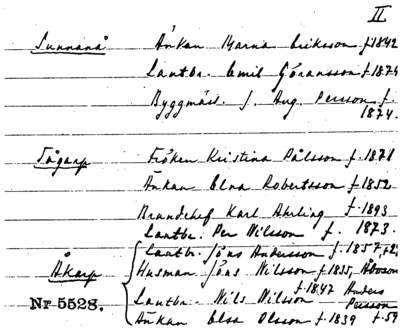 II
Sunnanå Änkan Maria Eriksson f. 1842
Lantbr. Emil Göransson f. 1874
Byggmäst. J. Aug. Persson f.
1874.
Tågarp Fröken Kristina Pålsson f. 1871
Änkan Elna Robertsson f. 1852
Brandchef Karl Ahrling f. 1893
Lantbr. Per Nilsson f. 1873.
Lantbr. Jöns Andersson f. 1857,
Åkarp Husman Jöns Nilsson f. 1855, Åboson
f. 1847 Anders
Lantbr. Nils Nilsson Persson
Nr 5528. Änkan Elsa Olsson f. 1839 f. 59